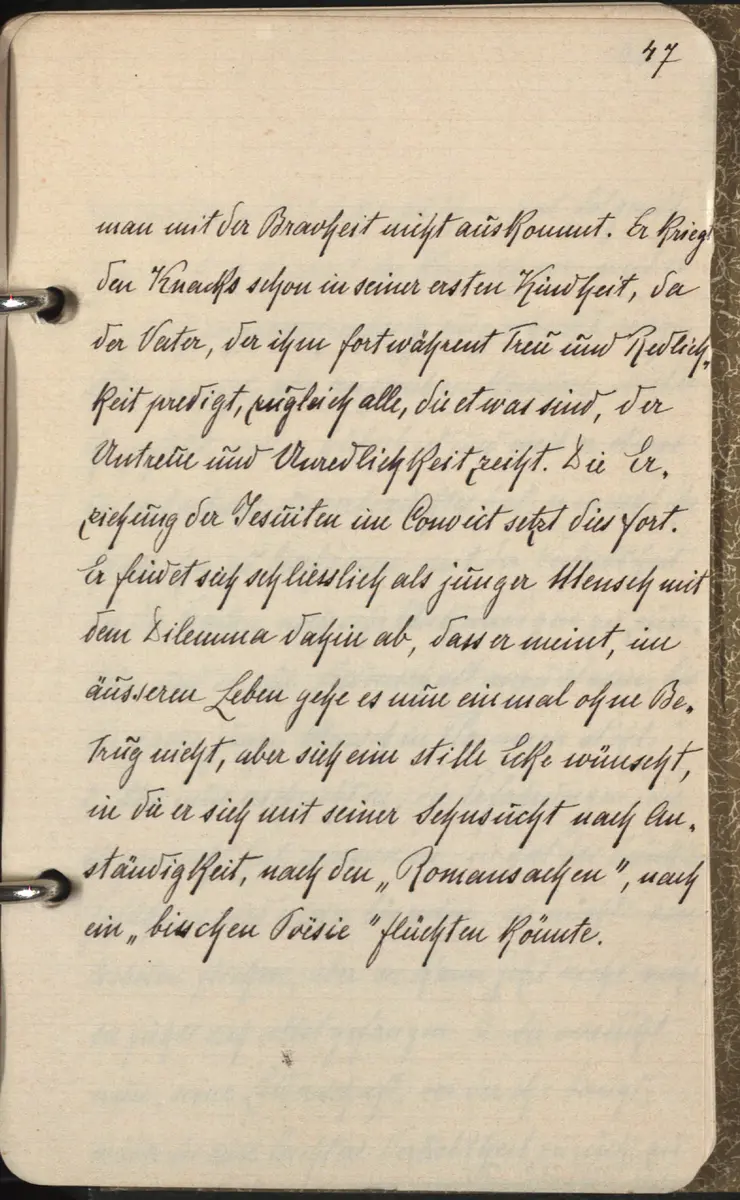 47
man mit der Bravheit nicht auskommt. Er kriegt
den Knacks schon in seiner ersten Kindheit, da
der Vater, der ihm fortwährent Treu und Redlich-
keit predigt, zugleich alle, die etwas sind, der
Untreue und Unredlichkeit zeiht. Die Er-
ziehung der Jesuiten im Convict setzt dies fort.
Er findet sich schliesslich als junger Mensch mit
dem Dilemma dahin ab, dass er meint, im
äusseren Leben gehe es nun einmal ohne Be-
trug nicht, aber sich eine stille Ecke wünscht,
in die er sich mit seiner Sehnsucht nach An-
ständigkeit, nach den „Romansachen", nach
ein „bisschen Poësie" flüchten könnte.